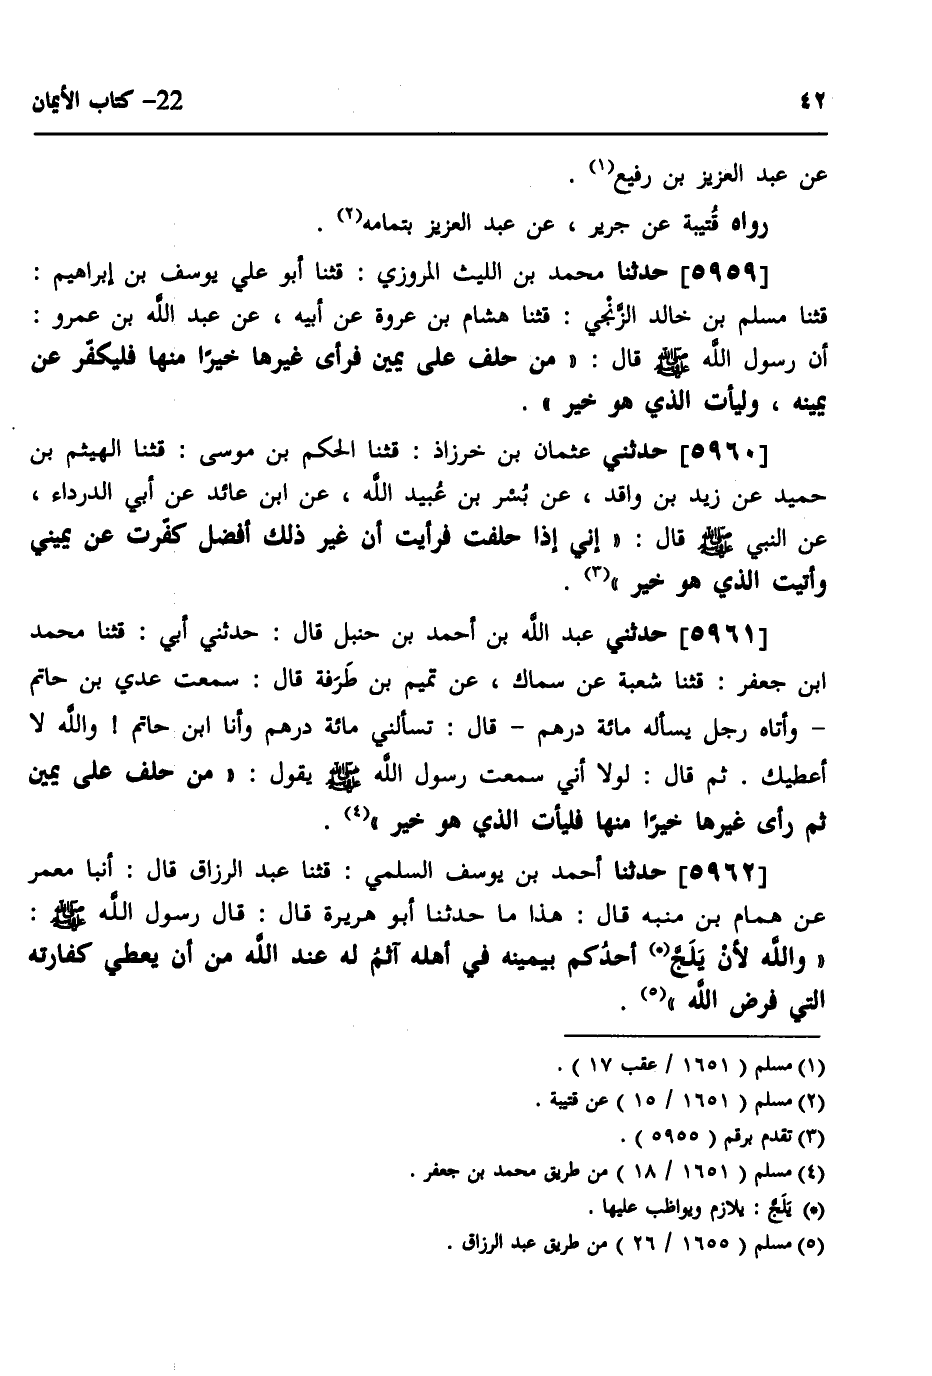 ٤٢
22- كتاب الأيمان
عن عبد العزيز بن رفيع(١) .
رواه قُتيبة عن جرير ، عن عبد العزيز بتمامه(٢) .
[٥٩٥٩] حدثنا محمد بن الليث المروزي : قثنا أبو علي يوسف بن إبراهيم :
قثنا مسلم بن خالد الزَّنْجي : قثنا هشام بن عروة عن أبيه ، عن عبد اللَّه بن عمرو :
أن رسول اللَّه ﷺ قال : « من حلف على يمين فرأى غيرها خيرًا منها فليكفّر عن
يمينه ، وليأت الذي هو خير » .
[٥٩٦٠] حدثني عثمان بن خرزاذ : قثنا الحكم بن موسى : قثنا الهيثم بن
حميد عن زيد بن واقد ، عن بُسْر بن عُبيد اللَّه ، عن ابن عائد عن أبي الدرداء ،
عن النبي ﷺ قال : « إني إذا حلفت فرأيت أن غير ذلك أفضل كفّرت عن يميني
وأتيت الذي هو خير »(٣) .
[٥٩٦١] حدثني عبد اللَّه بن أحمد بن حنبل قال : حدثني أبي : قثنا محمد
ابن جعفر : قثنا شعبة عن سماك ، عن تميم بن طَرَفة قال : سمعت عدي بن حاتم
- وأتاه رجل يسأله مائة درهم - قال : تسألني مائة درهم وأنا ابن حاتم ! واللَّه لا
أعطيك . ثم قال : لولا أني سمعت رسول اللَّه ﷺ يقول : « من حلف على يمين
ثم رأى غيرها خيرًا منها فليأت الذي هو خير »(٤) .
[٥٩٦٢] حدثنا أحمد بن يوسف السلمي : قثنا عبد الرزاق قال : أنبا معمر
عن همام بن منبه قال : هذا ما حدثنا أبو هريرة قال : قال رسول اللَّه ﷺ :
« واللَّه لأنْ يَلَجَّ(•) أحدُكم بيمينه في أهله آثمُ له عند اللَّه من أن يعطي كفارته
التي فرض اللَّه »(٥) .
(١) مسلم ( ١٦٥١ / عقب ١٧ ) .
(٢) مسلم ( ١٦٥١ / ١٥ ) عن قتيبة .
(٣) تقدم برقم ( ٥٩٥٥ ) .
(٤) مسلم ( ١٦٥١ / ١٨ ) من طريق محمد بن جعفر .
(•) يَلَجَّ : يلازم ويواظب عليها .
(٥) مسلم ( ١٦٥٥ / ٢٦ ) من طريق عبد الرزاق .